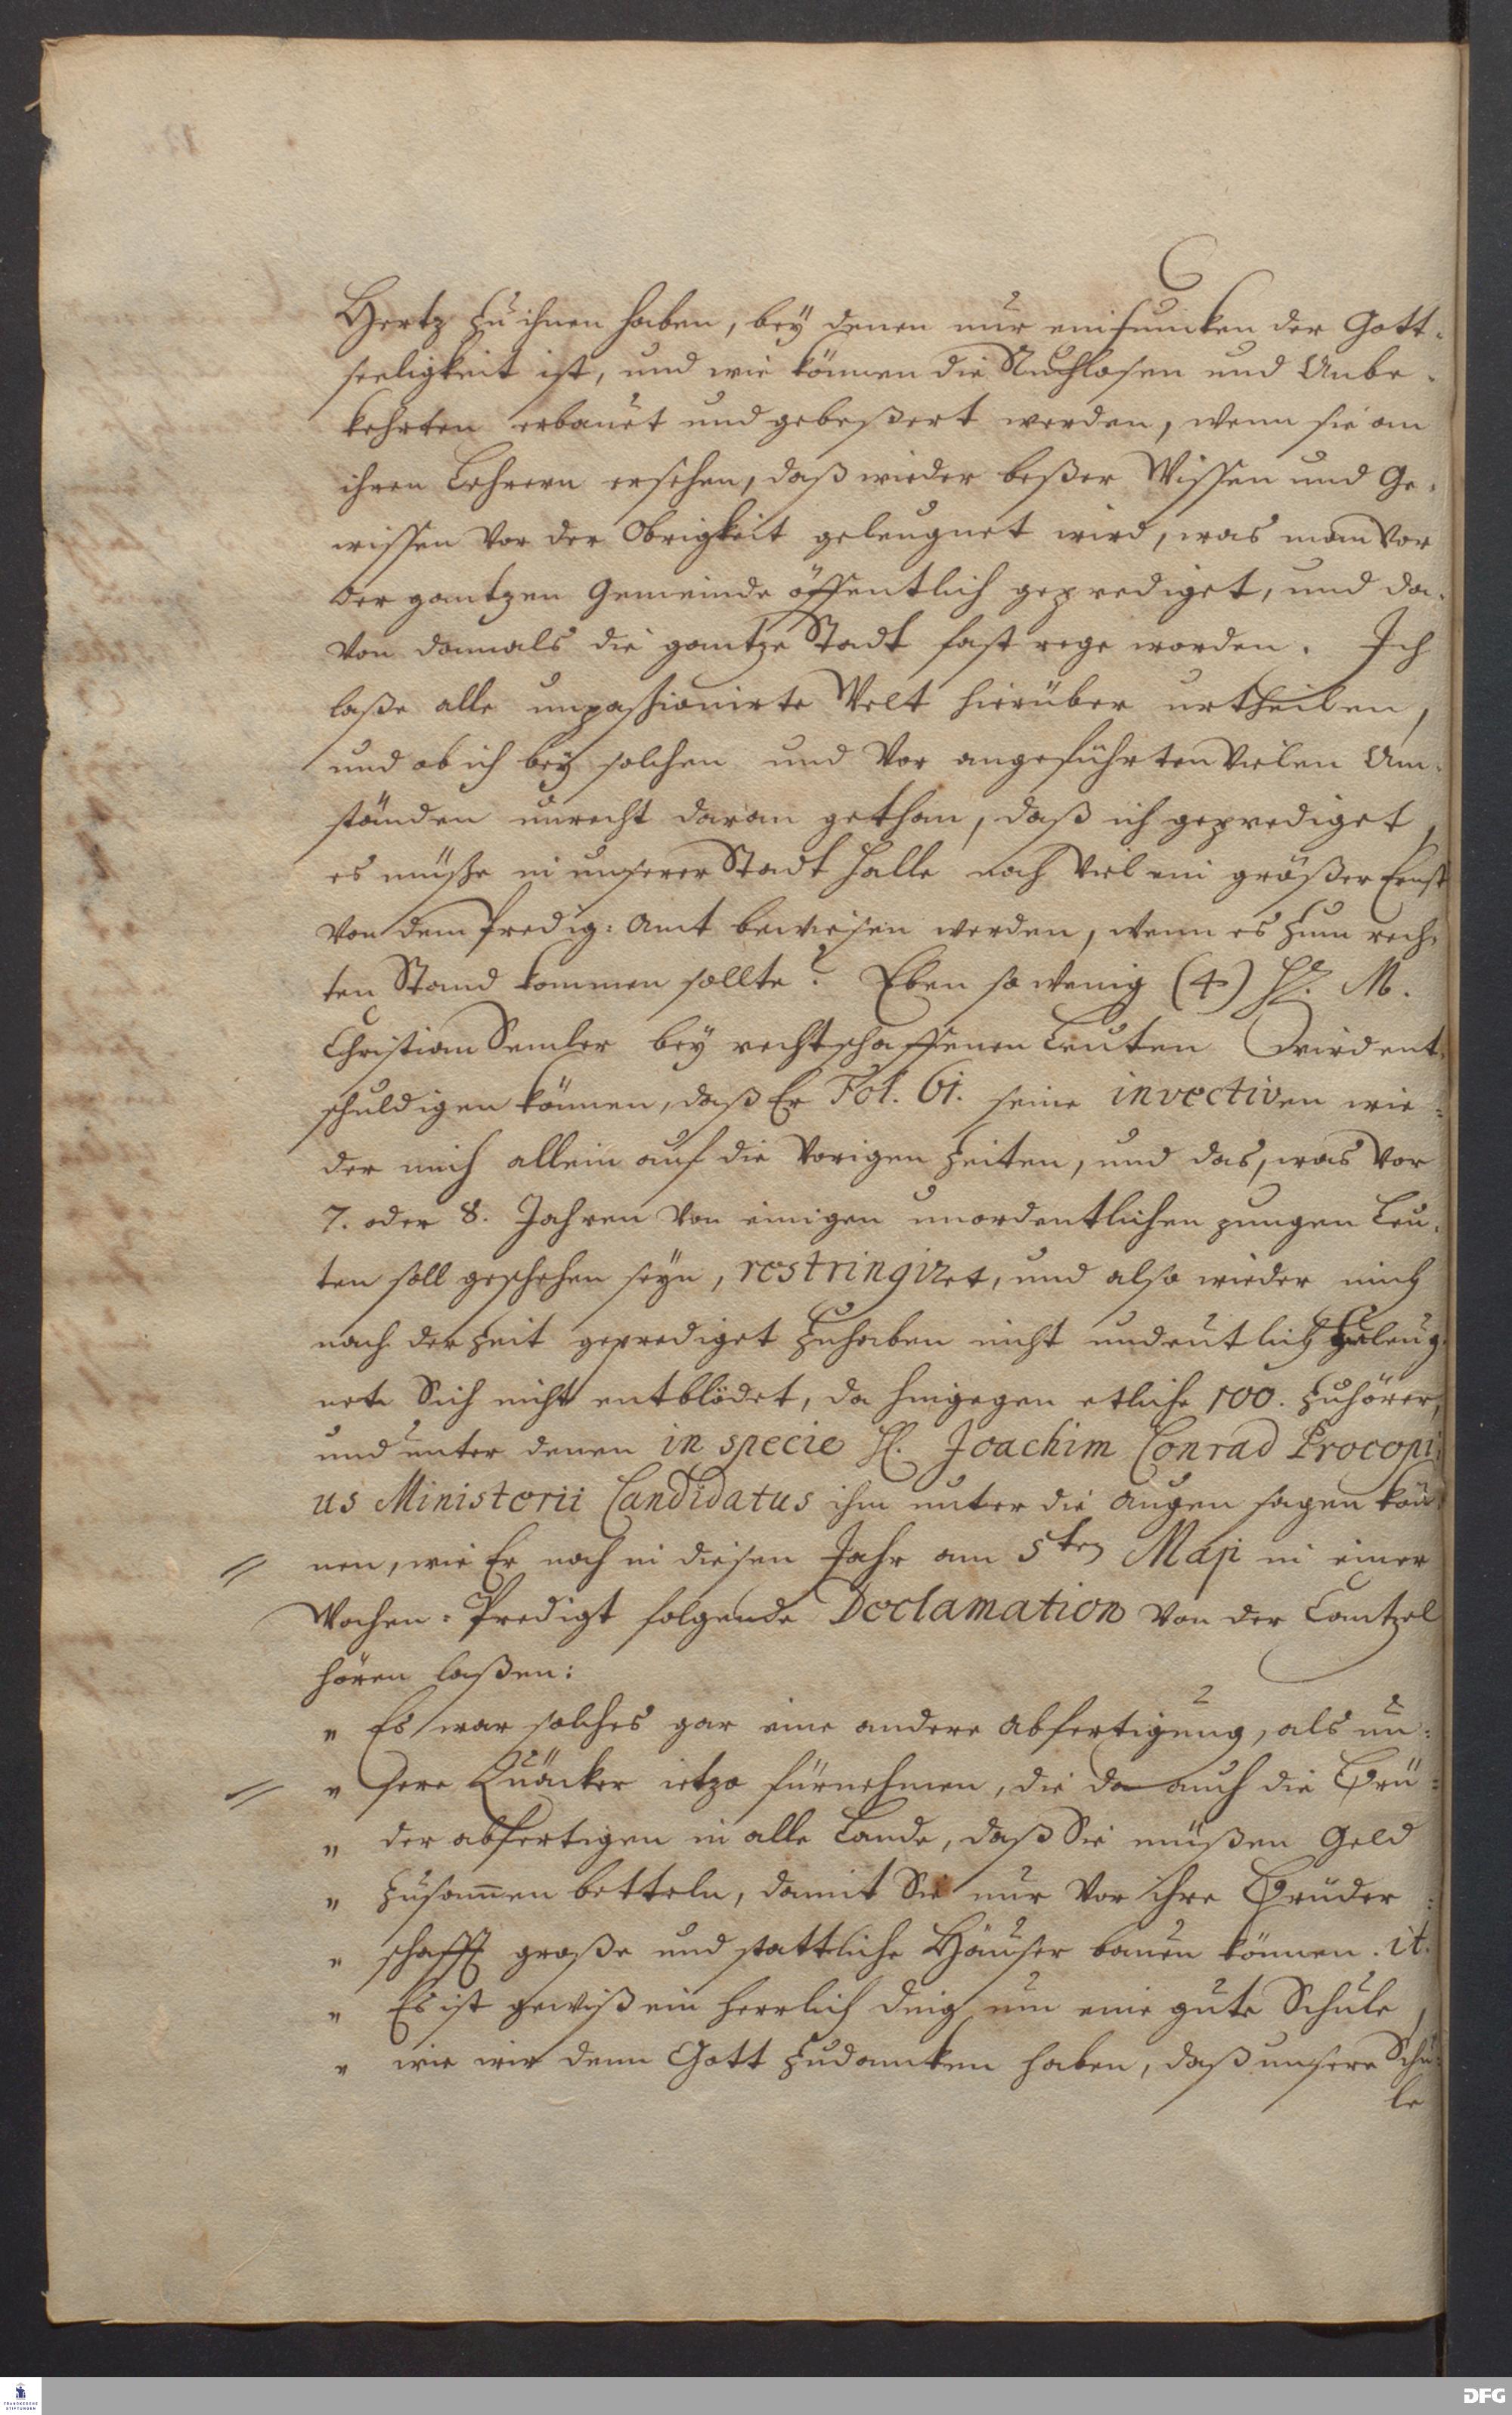 Hertz zu ihnen haben, bey denen nur ein funcken der Gott-
seeligkeit ist, und wie können die Ruchlosen und Unbe-
kehrten erbauet und gebeßert werden, wenn sie an
ihren Lehrern ersehen, daß wieder beßer Wissen und Ge-
wissen vor der Obrigkeit geleugnet wird, was man vor
der gantzen Gemeinde öffentlich geprediget, und da-
von damals die gantze Stadt fast rege worden. Ich
laße alle unpassionirte Welt hierüber urtheilen,
und ob ich bey solchen und vor angeführten vielen Um-
ständen unrecht daran gethan, daß ich geprediget,
es müße in unserer Stadt Halle noch viel ein größer Ernst
von dem Predig: Amt bewiesen werden, wenn es zum rech-
ten Stand kommen sollte? Eben so wenig (4) H. M.
Christian Semler bey rechtschaffenen Leuten wird ent-
schuldigen können, daß Er Fol. 61. seine invectiven wie-
der mich allein auf die vorigen Zeiten, und das, was vor
7. oder 8. Jahren von einigen unordentlichen jungen Leu-
ten soll geschehen seyn, restringiret, und also wieder mich
nach der Zeit geprediget zu haben nicht undeutlich geleug-
net Sich nicht entblödet, da hingegen etliche 100. Zuhörer,
und unter denen in specie H. Joachim Conrad Procopi-
us Ministerii Candidatus ihm unter die Augen sagen kön-
nen, wie Er noch in diesen Jahr am 5ten Maji in einer
Wochen-Predigt folgende Declamation von der Cantzel
hören laßen:
" Es war solches gar eine andere Abfertigung, als un-
" sere Quäcker ietzo fürnehmen, die da auch die Brü-
" der abfertigen in alle Lande, daß Sie müßen Geld
" zusammen betteln, damit Sie nur vor ihre Brüder-
" schafft große und stattliche Häuser bauen können. it.
" Es ist gewiß ein herrlich Ding um eine gute Schule,
" wie wir denn Gott zu dancken haben, daß unsere Schu-
le
FRANCKESCHE STIFTUNGEN
DFG